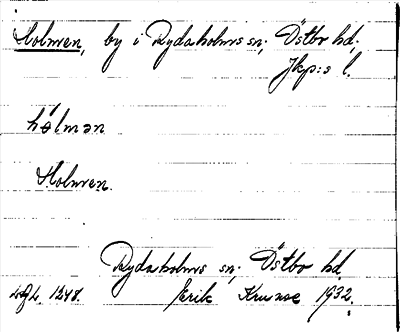 Holmen, by i Rydaholms sn; Östbo hd,
Jkp:s l.
hólmən
Holmen.
Rydaholms sn; Östbo hd.
1248. Erik 1932.